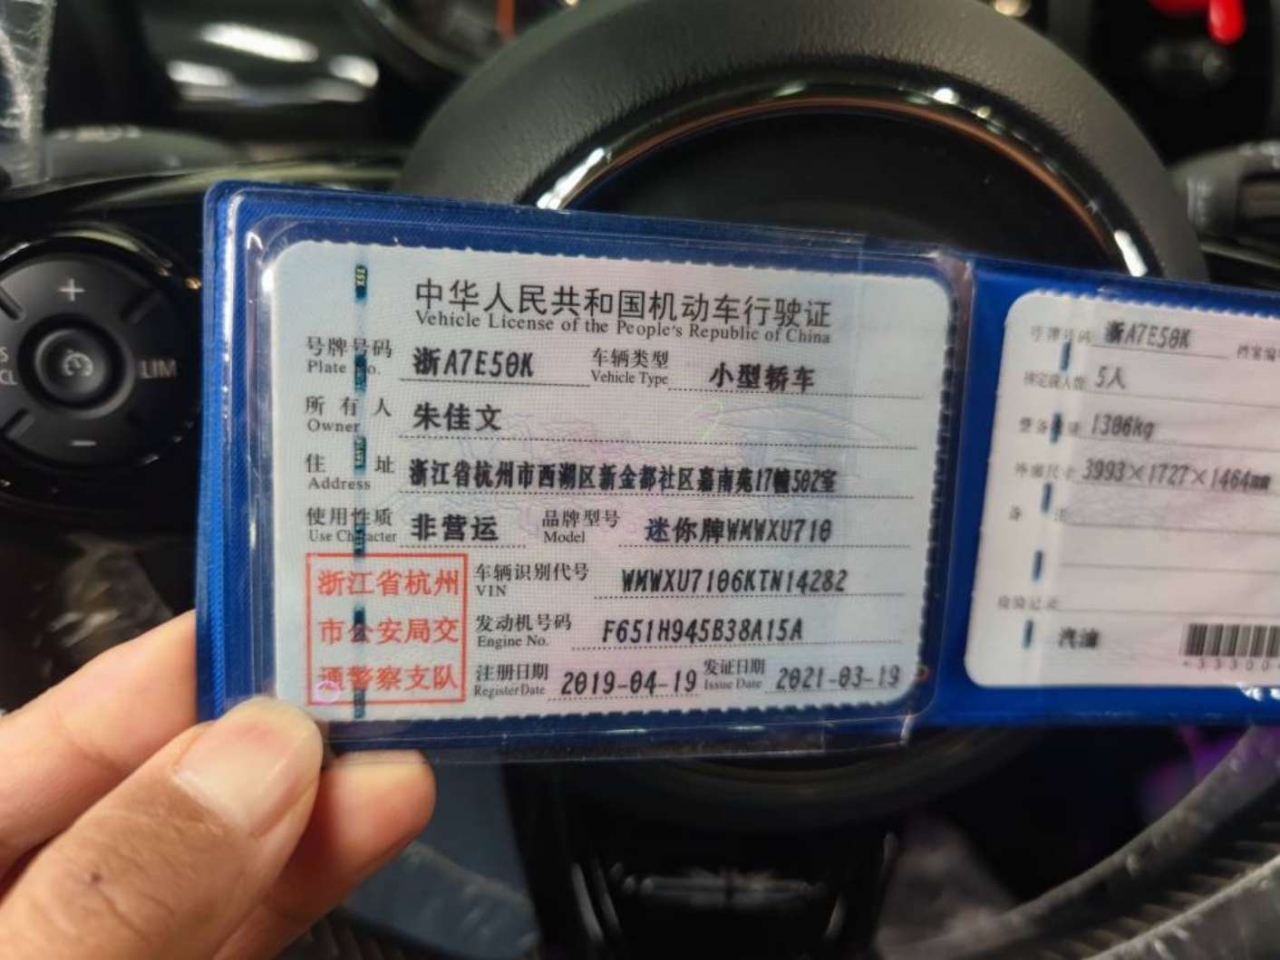 中华人民共和国机动车行驶证
Vehicle License of the People's Republic of China
号牌号码 浙A7E50K 车辆类型 小型轿车
Plate No. Vehicle Type
所有人 朱佳文
Owner
住址 浙江省杭州市西湖区新金都社区嘉南苑17幢502室
Address
使用性质 非营运 品牌型号 迷你牌WMWXU710
Use Character Model
浙江省杭州
市公安局交
通警察支队
车辆识别代号 WMWXU7106KTN14282
VIN
发动机号码 F651H945B38A15A
Engine No.
注册日期 2019-04-19 发证日期 2021-03-19
Register Date Issue Date
号牌号码 浙A7E50K
核定载人数 5人
整备质量 1306kg
外廓尺寸 3993×1727×1464mm
备注
检验记录
汽油
+
LIM
−